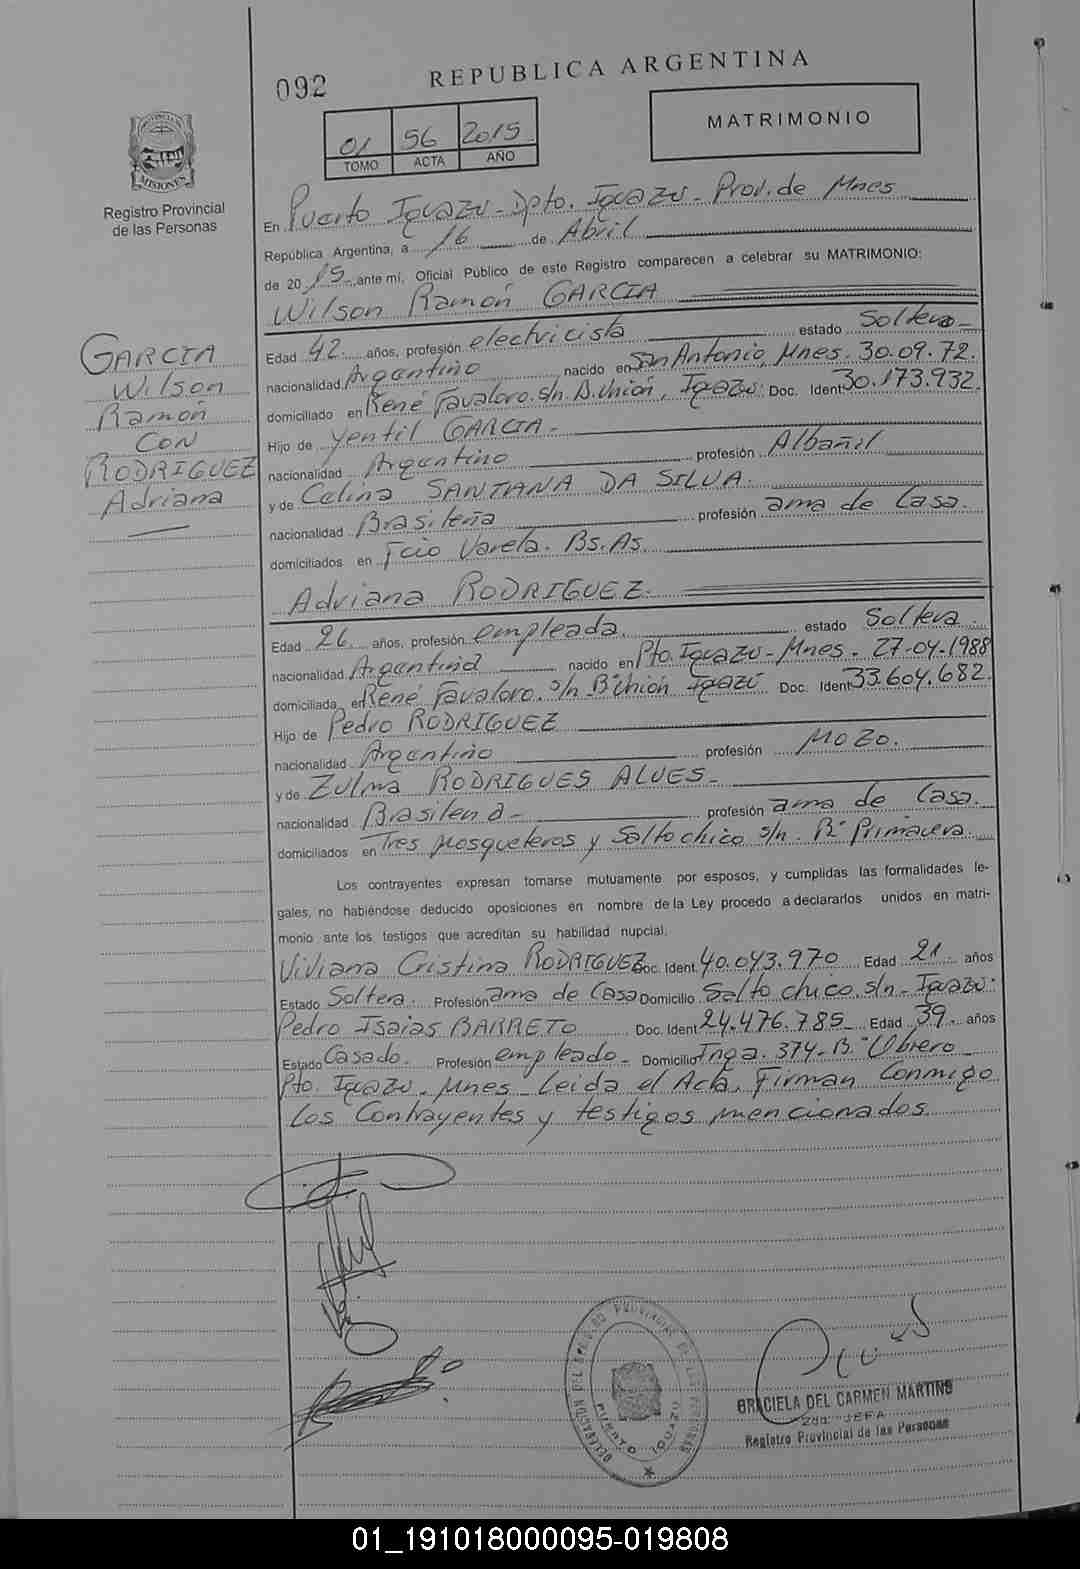 092
REPUBLICA ARGENTINA
01 56 2015
TOMO ACTA AÑO
MATRIMONIO
PROVINCIA DE MISIONES
Registro Provincial
de las Personas
En Puerto Iguazu - Dpto. Iguazu - Prov. de Mnes
República Argentina, a 16 de Abril
de 2015 ante mí, Oficial Público de este Registro comparecen a celebrar su MATRIMONIO:
Wilson Ramón GARCIA
Edad 42 años, profesión electricista estado Soltero
nacionalidad Argentino nacido en San Antonio, Mnes. 30.09.72.
domiciliado en René Favaloro. s/n. B. Unión, Iguazu. Doc. Ident 30.173.932.
Hijo de Yentil GARCIA.
nacionalidad Argentino profesión Albañil
y de Celina SANTANA DA SILVA.
nacionalidad Brasileña profesión ama de Casa.
domiciliados en Fcio Varela. Bs. As.
GARCIA
Wilson
Ramón
CON
RODRIGUEZ
Adriana
Adriana RODRIGUEZ.
Edad 26 años, profesión empleada. estado Soltera
nacionalidad Argentina nacido en Pto. Iguazu - Mnes. 27-04-1988
domiciliada en René Favaloro. s/n B° Unión Iguazú Doc. Ident 33.604.682.
Hijo de Pedro RODRIGUEZ
nacionalidad Argentino profesión Mozo.
y de Zulma RODRIGUES ALVES.
nacionalidad Brasilena profesión ama de Casa.
domiciliados en Tres Mosqueteros y Salto chico s/n. B° Primavera
Los contrayentes expresan tomarse mutuamente por esposos, y cumplidas las formalidades le-
gales, no habiéndose deducido oposiciones en nombre de la Ley procedo a declararlos unidos en matri-
monio ante los testigos que acreditan su habilidad nupcial:
Viviana Cristina RODRIGUEZ Doc. Ident. 40.043.970 Edad 21 años
Estado Soltera. Profesión ama de Casa Domicilio Salto chico. s/n - Iguazu.
Pedro Isaias BARRETO Doc. Ident 24.476.785 Edad 39 años
Estado Casado. Profesión empleado Domicilio Inga. 374 - B.° Obrero
Pto. Iguazu. Mnes Leida el Acta, Firman Conmigo
Los Contrayentes y testigos mencionados.
DELEGACION DEL REGISTRO PROVINCIAL DE LAS PERSONAS
PUERTO IGUAZU
GRACIELA DEL CARMEN MARTINS
2da. JEFA
Registro Provincial de las Personas
01_191018000095-019808